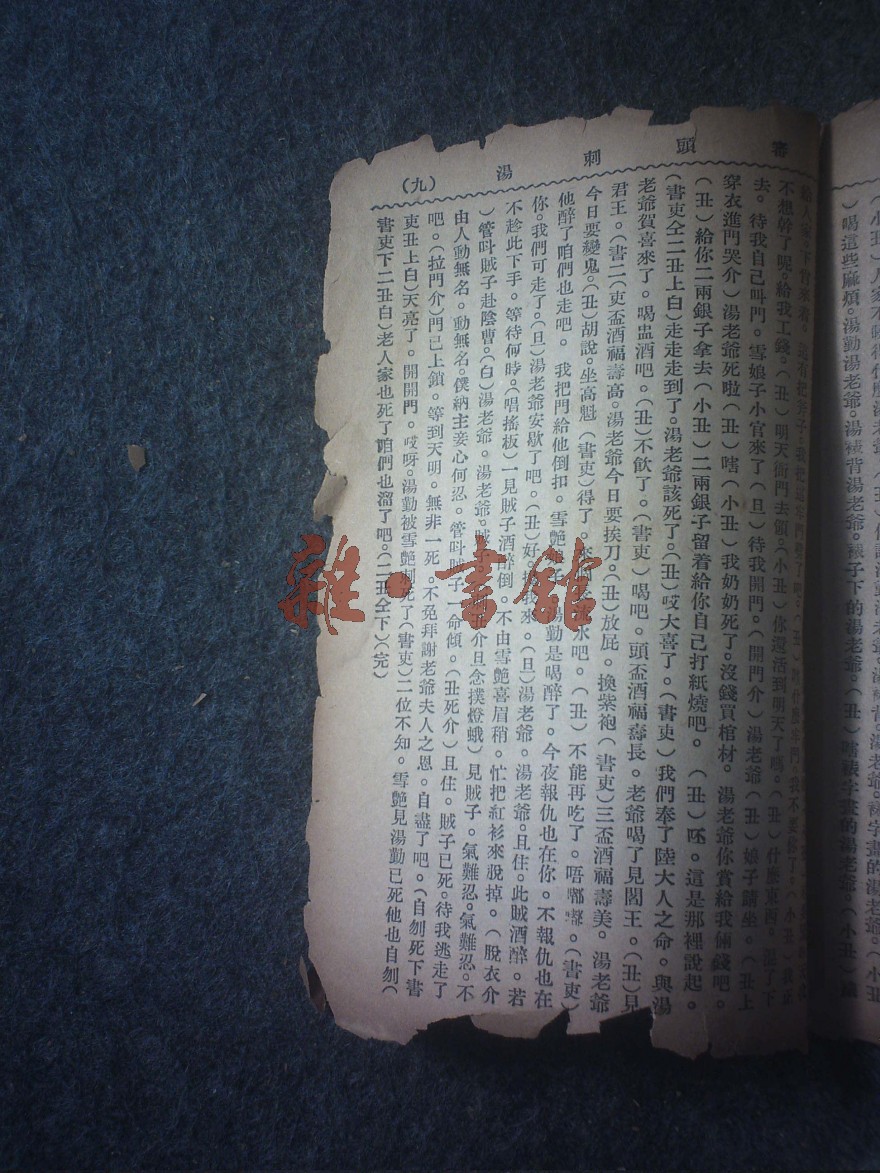 審頭刺湯 (九)
不想幹了呢。給我工錢。(丑)明天衙門去領。(小丑)你還活到明天了嗎。(丑)什麼東西。
去。待我自己叫門。雪娘子小官來了(旦)待我開門。(開門介)湯老爺(丑)娘子請坐。(丑上
穿衣進門哭介)湯老爺死啦(丑)嗐(小丑)我奶奶死了。沒錢買棺材。湯老爺你賞給我倆錢吧。
(丑)給你二兩銀子拿去(小丑)二兩銀子留着給你自己打紙燒吧。(丑)呸。這是那裡說起。
(書吏仝二丑上白)走走走到了。湯老爺該死了。(丑)哎大喜了。(書吏)我們奉了陸大人之命。與湯
老爺賀喜來了。喝盅酒吧。(丑)不飲了。(書吏)喝吧。頭盃酒福壽長。老爺喝了見閻王。(丑)見
君王。(書二(吏盃酒福壽高。湯老爺今日要挨刀。(丑)放屁。換紫袍(書吏)三盃酒福壽美。湯老爺
今日要變鬼。(丑)胡說。坐高魁(書吏)得了。水吧。(丑)不能再吃了。唔嘟嘟。(書吏)
他醉了咱們也走吧。我把門給他倒扣。雪艷湯勤是喝醉了。今夜報仇也在你。不報仇也在
你。我們可走了。(旦)湯老爺安歇了吧。(丑)好。我來。(旦)湯老爺。湯老爺。且住。此賊酒醉。若
不趁此下手。等待何時。(唱搖板)一見賊子酒醉倒。不由雪艷喜眉稍。忙把紅衫來脫掉。(脫衣介
)管呌賊子赴陰曹。(白)湯老爺。湯老爺。賊介旦念撲燈蛾)見賊子。氣難忍。氣難忍。不
由人動無名。動無名。僕納主妾心何忍。管呌賊子一命傾。(丑死介)且住。賊子已死。待我逃走了
吧。(拉門介)門已上鎖。等到天明。無非一死。不免拜謝老爺夫人之恩。自盡了吧。(自刎死下書
吏丑上白)天亮了。開開門。哎呀。湯勤被雪艷刺死了(書吏)二位不知。雪艷見湯勤已死他也自刎(
書吏下二丑白)老人家也死了咱們也溜了吧。(二丑仝下)(完)
)喝這些麻煩。湯勤湯老爺。湯裱背湯老爺。裱子下的湯老爺。(丑)嗐裱字畫的湯老爺。
雜·書館